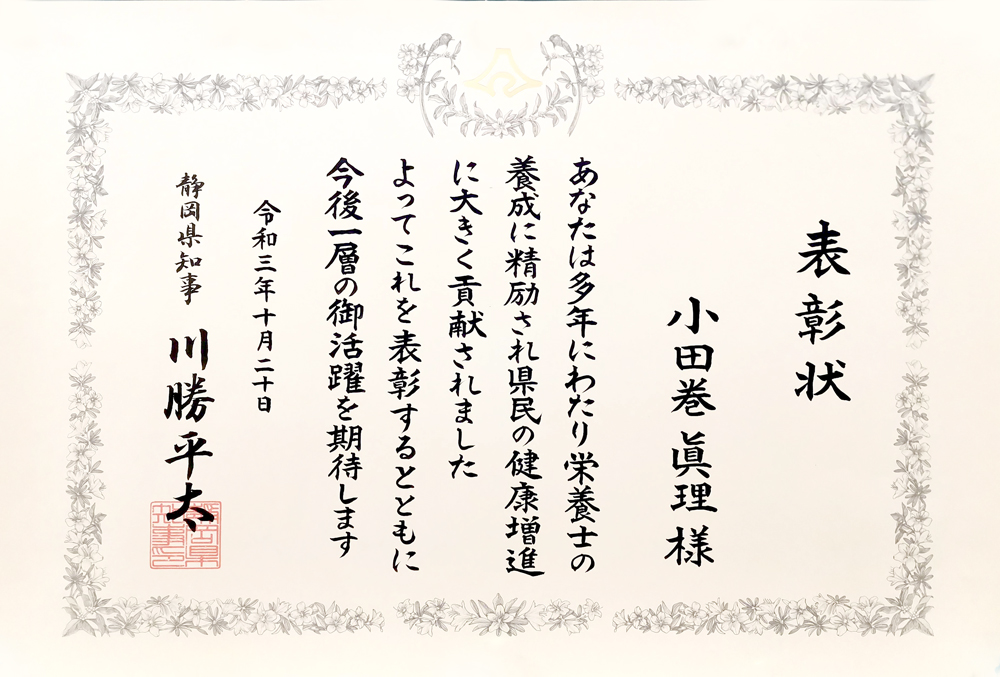 表彰状
小田巻眞理様
あなたは多年にわたり栄養士の
養成に精励され県民の健康増進
に大きく貢献されました
よってこれを表彰するとともに
今後一層の御活躍を期待します
令和三年十月二十日
静岡県知事 川勝平太
静岡県
知事印